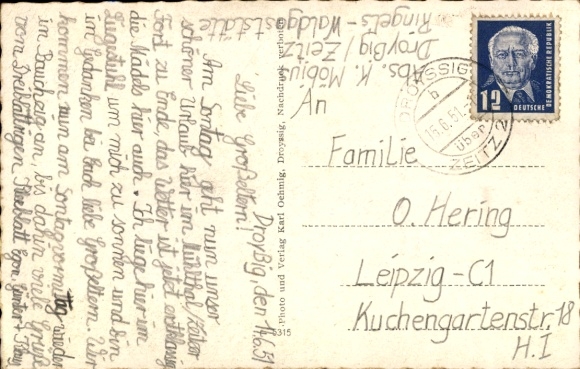 Abs. K. Möbius
Droyßig/Zeitz
Ringels-Waldgast
stätte
Droyßig, den 14.6.51
Liebe Großeltern!
Am Sonntag geht nun unser
schöner Urlaub hier im
Fort zu Ende, das Wetter ist jetzt erstklassig
die Mädels hier auch. Ich liege hier im
Liegestuhl um mich zu sonnen und bin
in Gedanken bei Euch liebe Großeltern. Wir
kommen nun am Sonntagvormittag wieder
in an, bis dahin viele Grüße
vom
Photo und Verlag Karl Oehmig, Droyssig, Nachdruck verboten
5315
DROYSSIG
b
16.6.51
über
ZEITZ 2
DEUTSCHE DEMOKRATISCHE REPUBLIK
12 DEUTSCHE
POST
An
Familie
O. Hering
Leipzig-C1
Kuchengartenstr. 18
H.I